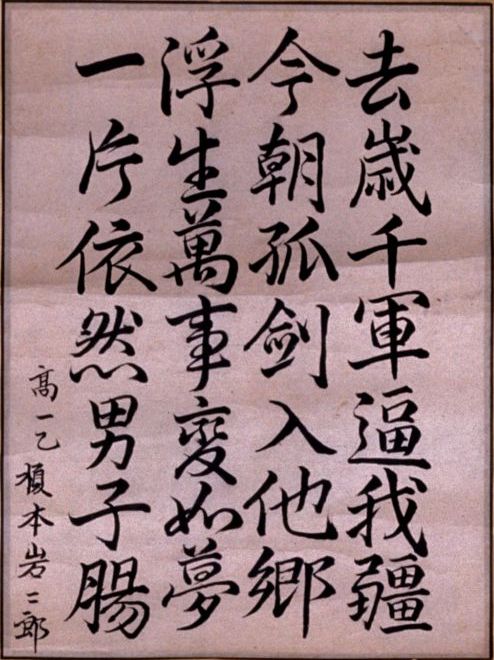 去歳千軍逼我疆
今朝孤剣入他郷
浮生萬事変如夢
一片依然男子腸
高一乙 榎本岩二郎